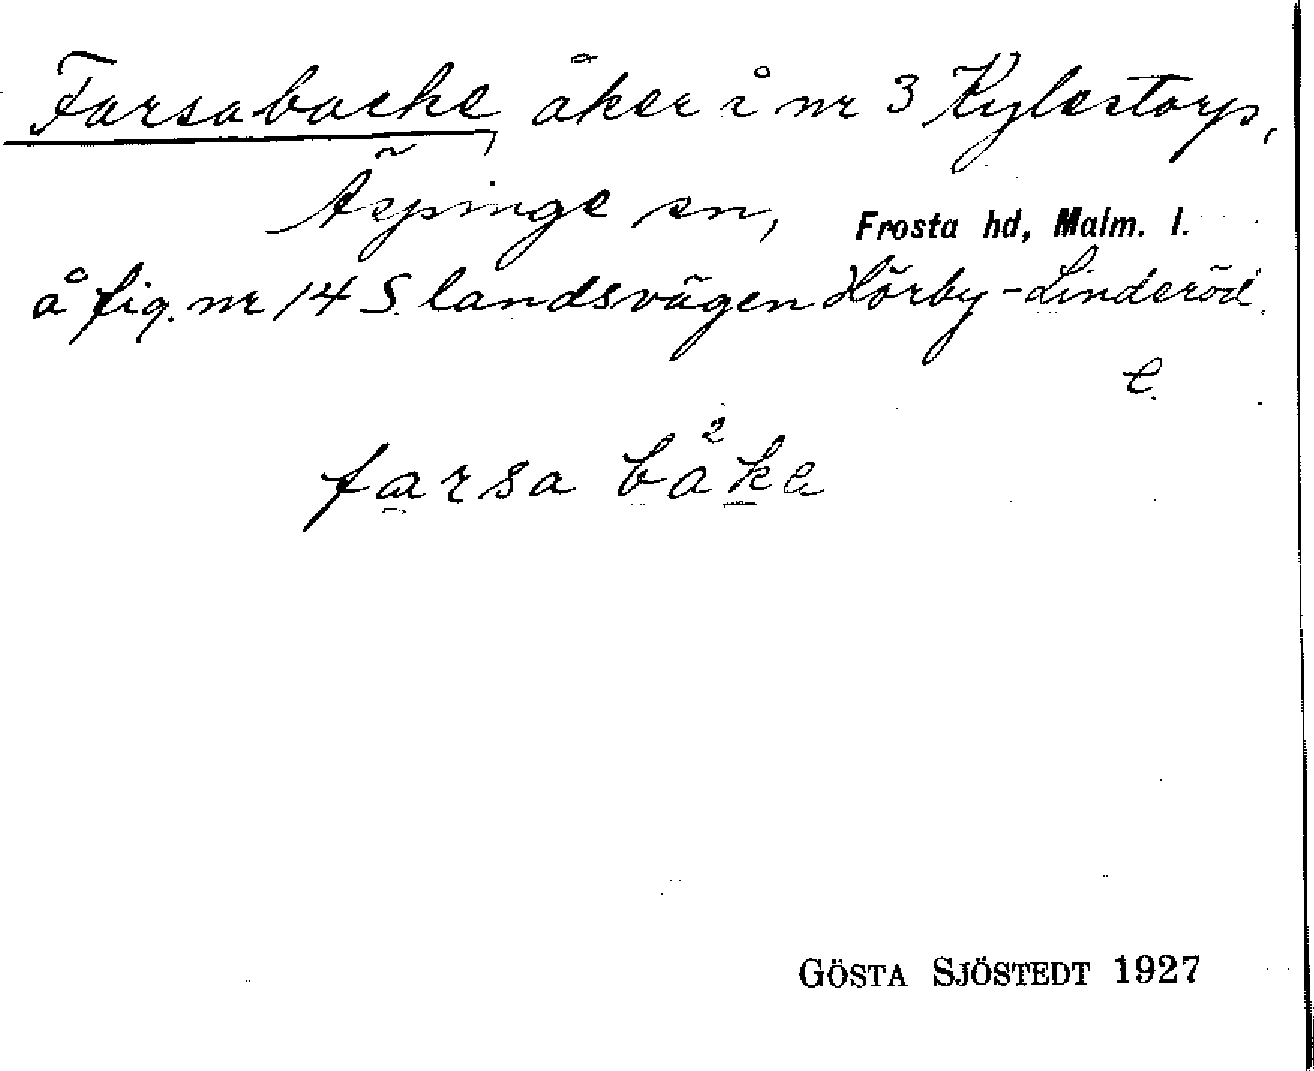 Farsabacke, åker å nr 3 Kylestorp,
Äspinge sn, Frosta hd, Malm. l.
å fig. nr 14 S. landsvägen Hörby-Linderöd.
farsa båke
GÖSTA SJÖSTEDT 1927